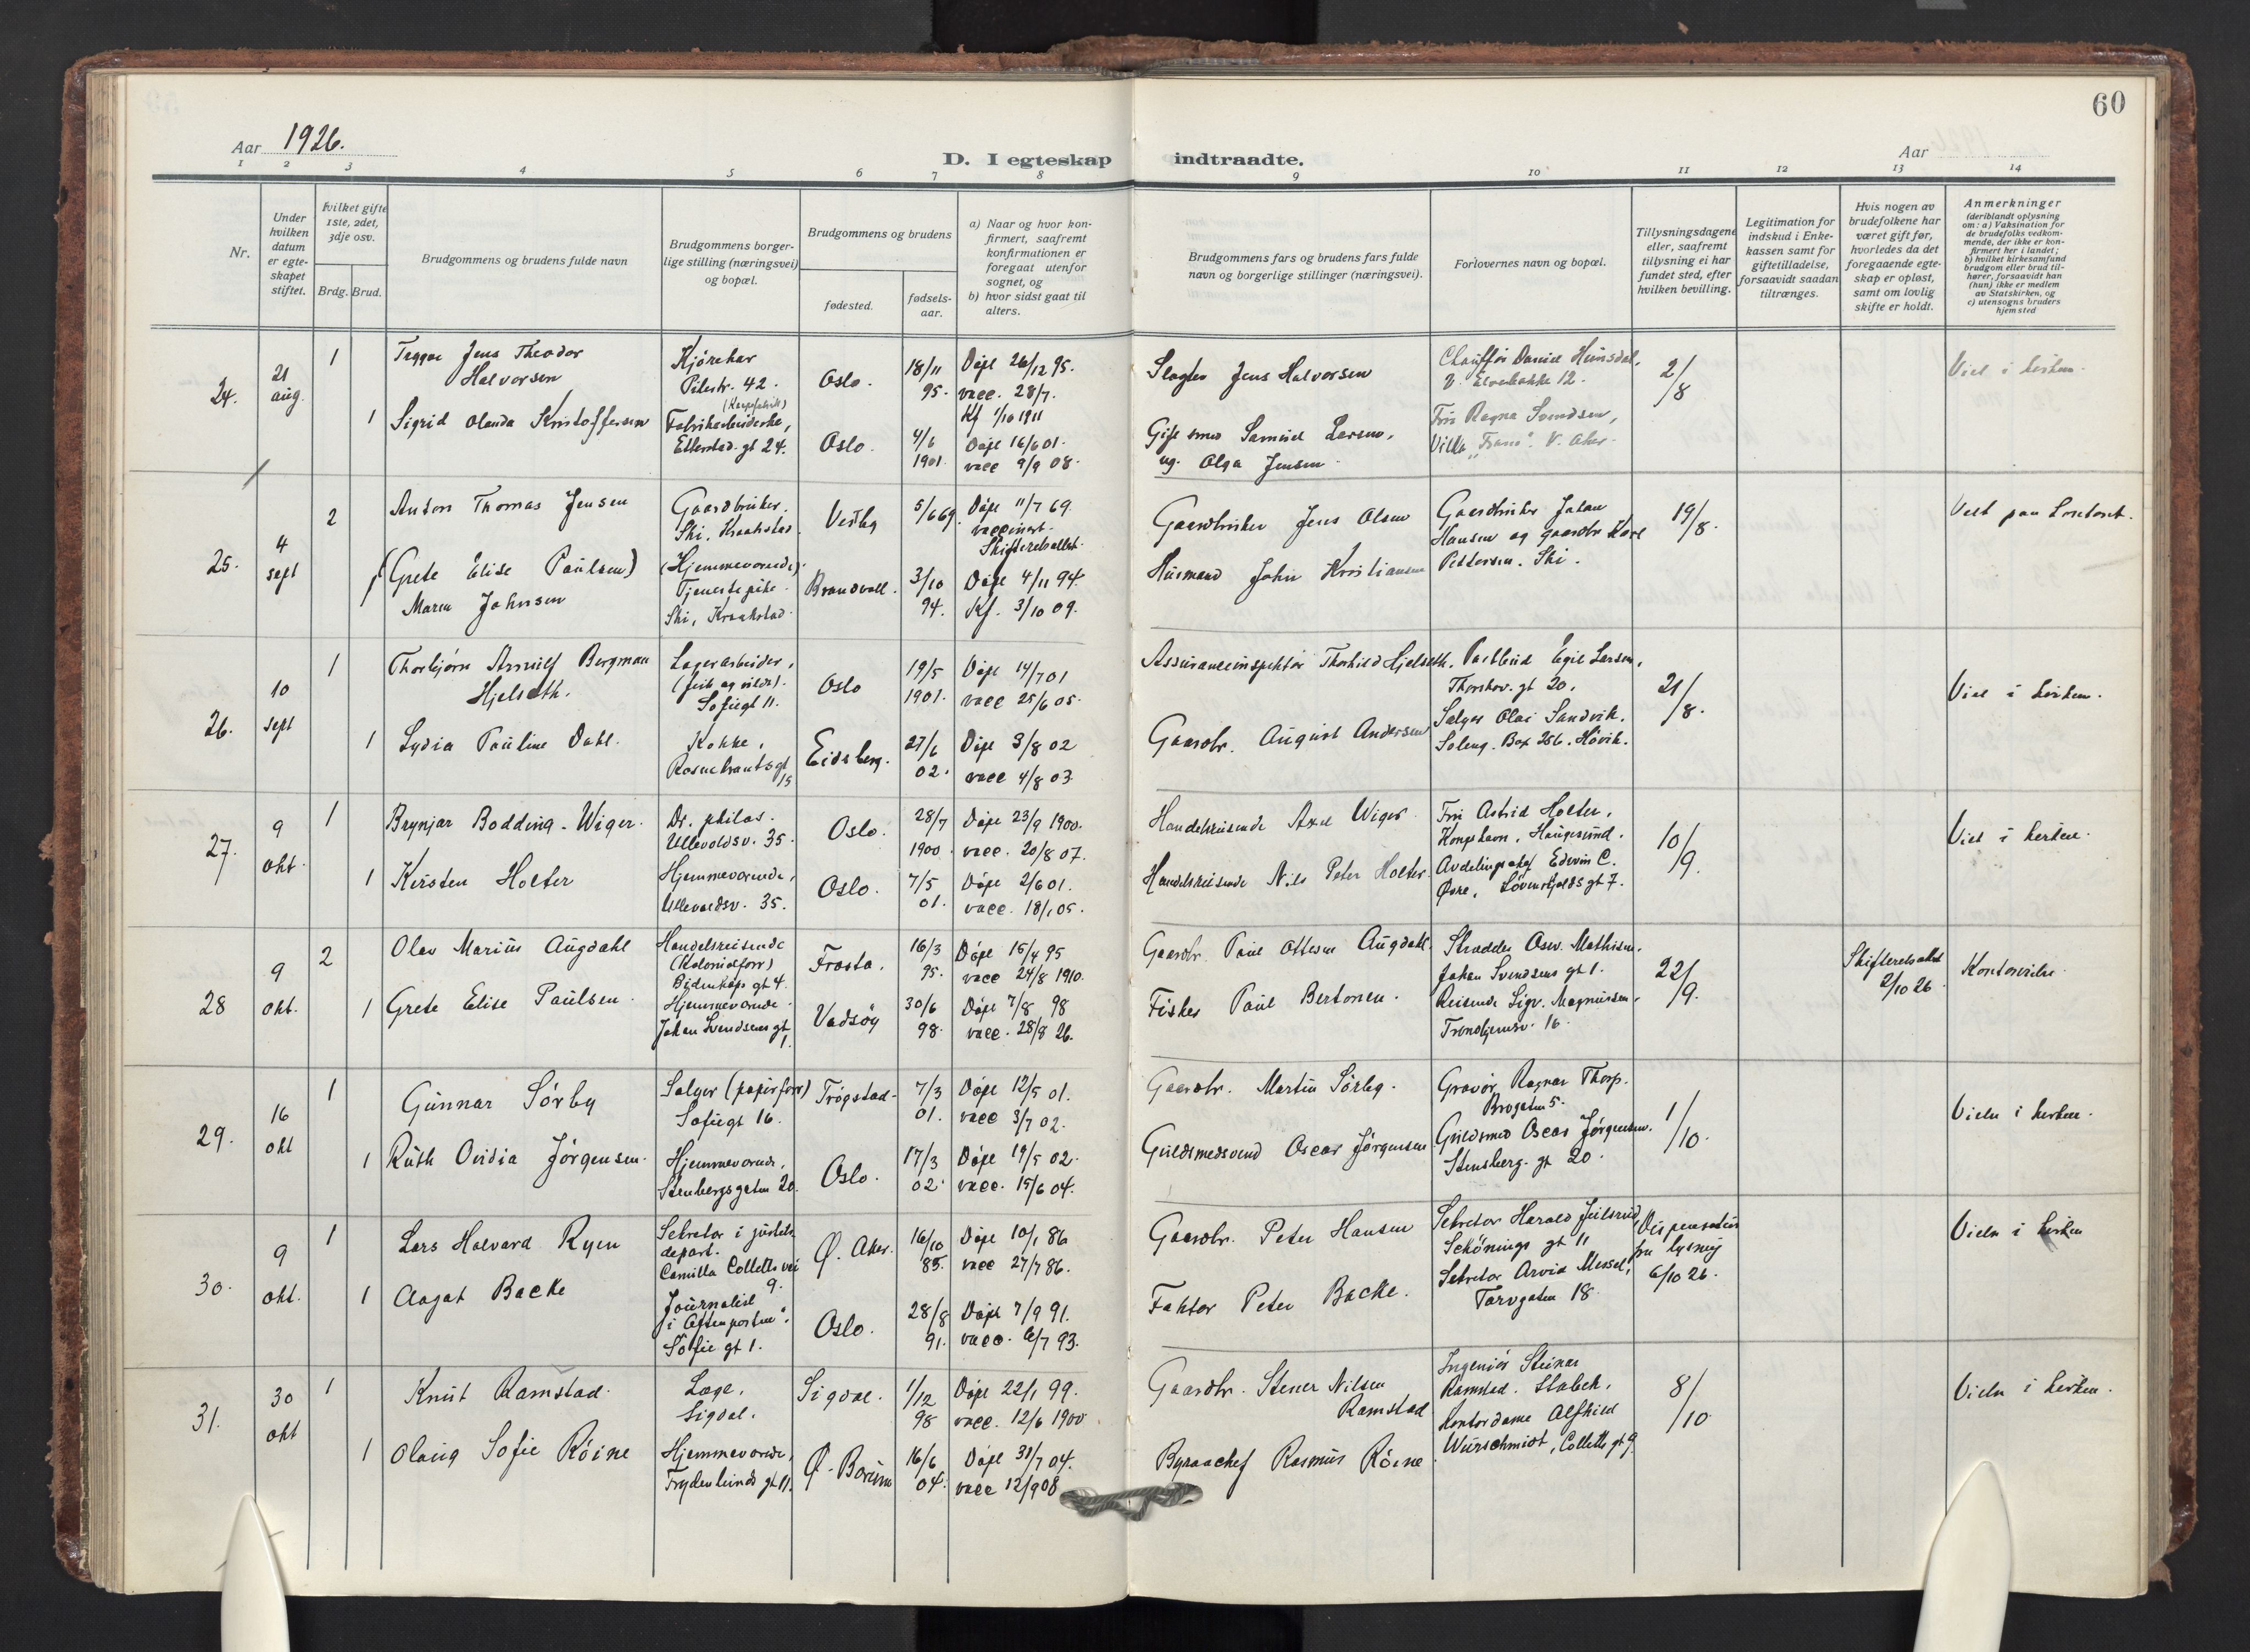 60
Aar 1926.
D. I egteskap indtraadte.
Aar
1 2 3 4 5 6 7 8 9 10 11 12 13 14
Nr.
Under
hvilken
datum
er egte-
skapet
stiftet.
hvilket gifte
1ste, 2det,
3dje osv.
Brdg. Brud.
Brudgommens og brudens fulde navn
Brudgommens borger-
lige stilling (næringsvei)
og bopæl.
Brudgommens og brudens
fødested.
fødsels-
aar.
a) Naar og hvor kon-
firmert, saafremt
konfirmationen er
foregaat utenfor
sognet, og
b) hvor sidst gaat til
alters.
Brudgommens fars og brudens fars fulde
navn og borgerlige stillinger (næringsvei).
Forlovernes navn og bopæl.
Tillysningsdagene
eller, saafremt
tillysning ei har
fundet sted, efter
hvilken bevilling.
Legitimation for
indskud i Enke-
kassen samt for
giftetilladelse,
forsaavidt saadan
tiltrænges.
Hvis nogen av
brudefolkene har
været gift før,
hvorledes da det
foregaaende egte-
skap er opløst,
samt om lovlig
skifte er holdt.
Anmerkninger
(deriblandt oplysning
om: a) Vaksination for
de brudefolks vedkom-
mende, der ikke er kon-
firmert her i landet;
b) hvilket kirkesamfund
brudgom eller brud til-
hører, forsaavidt han
(hun) ikke er medlem
av Statskirken, og
c) utensogns bruders
hjemsted
24.
21
aug.
1
Trygve Jens Theodor
Halvorsen
Kjørekar
Pilestr. 42.
Oslo.
18/11
95.
Døpt 26/12 95.
vacc. 28/7.
Slagter Jens Halvorsen
Chauffør Daniel Heimsdal,
V. Elvebakke 12.
2/8
Viet i kirken.
1
Sigrid Olanda Kristoffersen
Fabrikarbeiderske,
Etterstad. gt 24.
Oslo.
4/6
1901.
Kf 1/10 1911
Døpt 16/6 01.
vacc 9/9 08.
Samuel Larsen,
ug. Olga Jensen
Frk Ragna Svendsen,
Villa V. Aker.
25.
4
sept
2
Anton Thomas Jensen
Gaardbruker.
Ski, Kraakstad.
Vestby
5/6 69.
Døpt 11/7 69.
vaccinert.
Skifteretsattest.
Gaardbruker Jens Olsen
Gaardbruker Johan
Hansen og gaardbr Karl
Pettersen. Ski.
19/8.
Viet paa kontoret.
1
(Grete Elise Paulsen)
Maren Johnsen
(Hjemmeværende)
Tjenestepike
Ski, Kraakstad
Brandvall.
3/10
94.
Døpt 4/11 94.
Kf. 3/10 09.
Husmand John Kristiansen
26.
10
sept
1
Thorbjørn Arnulf Bergman
Hjelseth.
Lagerarbeider,
Sofiegt 11.
Oslo
19/5
1901.
Døpt 14/7 01
vacc 25/6 05.
Assuranceinspektør Thorhild Hjelseth.
Postbud Egil Larsen,
Thorshov. gt 20.
Sælger Olai Sandvik,
Soleng. Box 256. Høvik.
21/8.
Viet i kirken.
1
Lydia Pauline Dahl.
Kokke,
Rosenkrantsgt
15
Eidsberg.
27/6
02.
Døpt 3/8 02
vacc 4/8 03
Gaardbr. August Andersen
27.
9
okt.
1
Brynjar Bodding-Wiger.
Dr. philos.
Ullevoldsv. 35.
Oslo.
28/7
1900.
Døpt 23/9 1900.
vacc. 20/8 07.
Handelsreisende Axel Wiger.
Frk Astrid Holter,
Kongshavn, Haugesund.
Avdelingschef Edvin C.
Øvre, Løvenskjolds gt 7.
10/9.
Viet i kirken.
1
Kirsten Holter
Hjemmeværende,
Ullevoldsv. 35.
Oslo.
7/5
01.
Døpt 2/6 01.
vacc. 18/1 05.
Handelsreisende Nils Peter Holter.
28
9
okt.
2
Olav Marius Augdahl
Handelsreisende
(Kolonialforr)
Bidenkaps gt 4.
Frosta.
16/3
95.
Døpt 15/4 95
vacc 24/8 1910.
Gaardbr. Paul Ottesen Augdahl.
Skrædder Osw. Mathisen.
Johan Svendsens gt 1.
Reisende Sigv. Magnussen.
Trondhjemsv. 16.
22/9.
Skifteretsattest
2/10 26.
Kontorvielse.
1
Grete Elise Paulsen.
Hjemmeværende
Johan Svendsens gt
1.
Vadsöy
30/6
98.
Døpt 7/8 98
vacc. 28/8 26.
Fisker Paul Bertonen.
29.
16
okt
1
Gunnar Sørby
Sælger (papirforr)
Sofiegt 16.
Trøgstad.
7/3
01.
Døpt 12/5 01.
vacc 3/7 02.
Gaardbr. Martin Sørby.
Gravør Ragnar Thorp.
Brogaten 5.
Guldsmed Oscar Jørgensen.
Stensberg. gt 20.
1/10.
Vielse i kirken.
1
Ruth Ovidia Jörgensen.
Hjemmeværende,
Stenbergsgaten 20.
Oslo.
17/3
02.
Døpt 19/5 02.
vacc. 15/6 04.
Guldsmedsvend Oscar Jørgensen
30.
9
okt.
1
Lars Halvard Ryen
Sekretær i justits
depart.
Camilla Colletts vei
9.
Ø. Aker.
16/10
85.
Døpt 10/1 86
vacc 27/7 86.
Gaardbr. Peter Hansen
Sekretær Harald Juelsrud,
Schönings gt 11
Sekretær Arvid Messel,
Torvgaten 18.
Dispensation
fra lysning
6/10 26.
Vielse i kirken
1
Aagat Backe
Journalist
i "Aftenposten".
Sofie gt 1.
Oslo.
28/8
91.
Døpt 7/9 91.
vacc. 6/7 93.
Faktor Peter Backe.
31.
30
okt
1
Knut Ramstad.
Læge,
Sigdal.
Sigdal.
1/12
98
Døpt 22/1 99.
vacc. 12/6 1900
Gaardbr. Stener Nilsen
Ramstad
Ingeniør Steinar
Ramstad. Stabek.
Kontordame Alfhild
Würschmidt, Colletts gt 9
8/10
Vielse i kirken.
1
Olaug Sofie Röine
Hjemmeværende,
Frydenlunds gt 11.
Ø. Bærum
16/6
04.
Døpt 31/7 04.
vacc 12/9 08
Byraachef Rasmus Röine